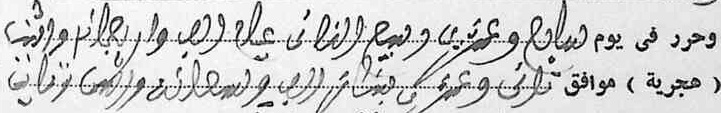 وحرر فى يوم سابع وعشرين ربيع الثانى عام الف واربعمائة واثنين
( هجرية ) موافق ثانى وعشرين الف وتسعمائة واثنين وثمانين